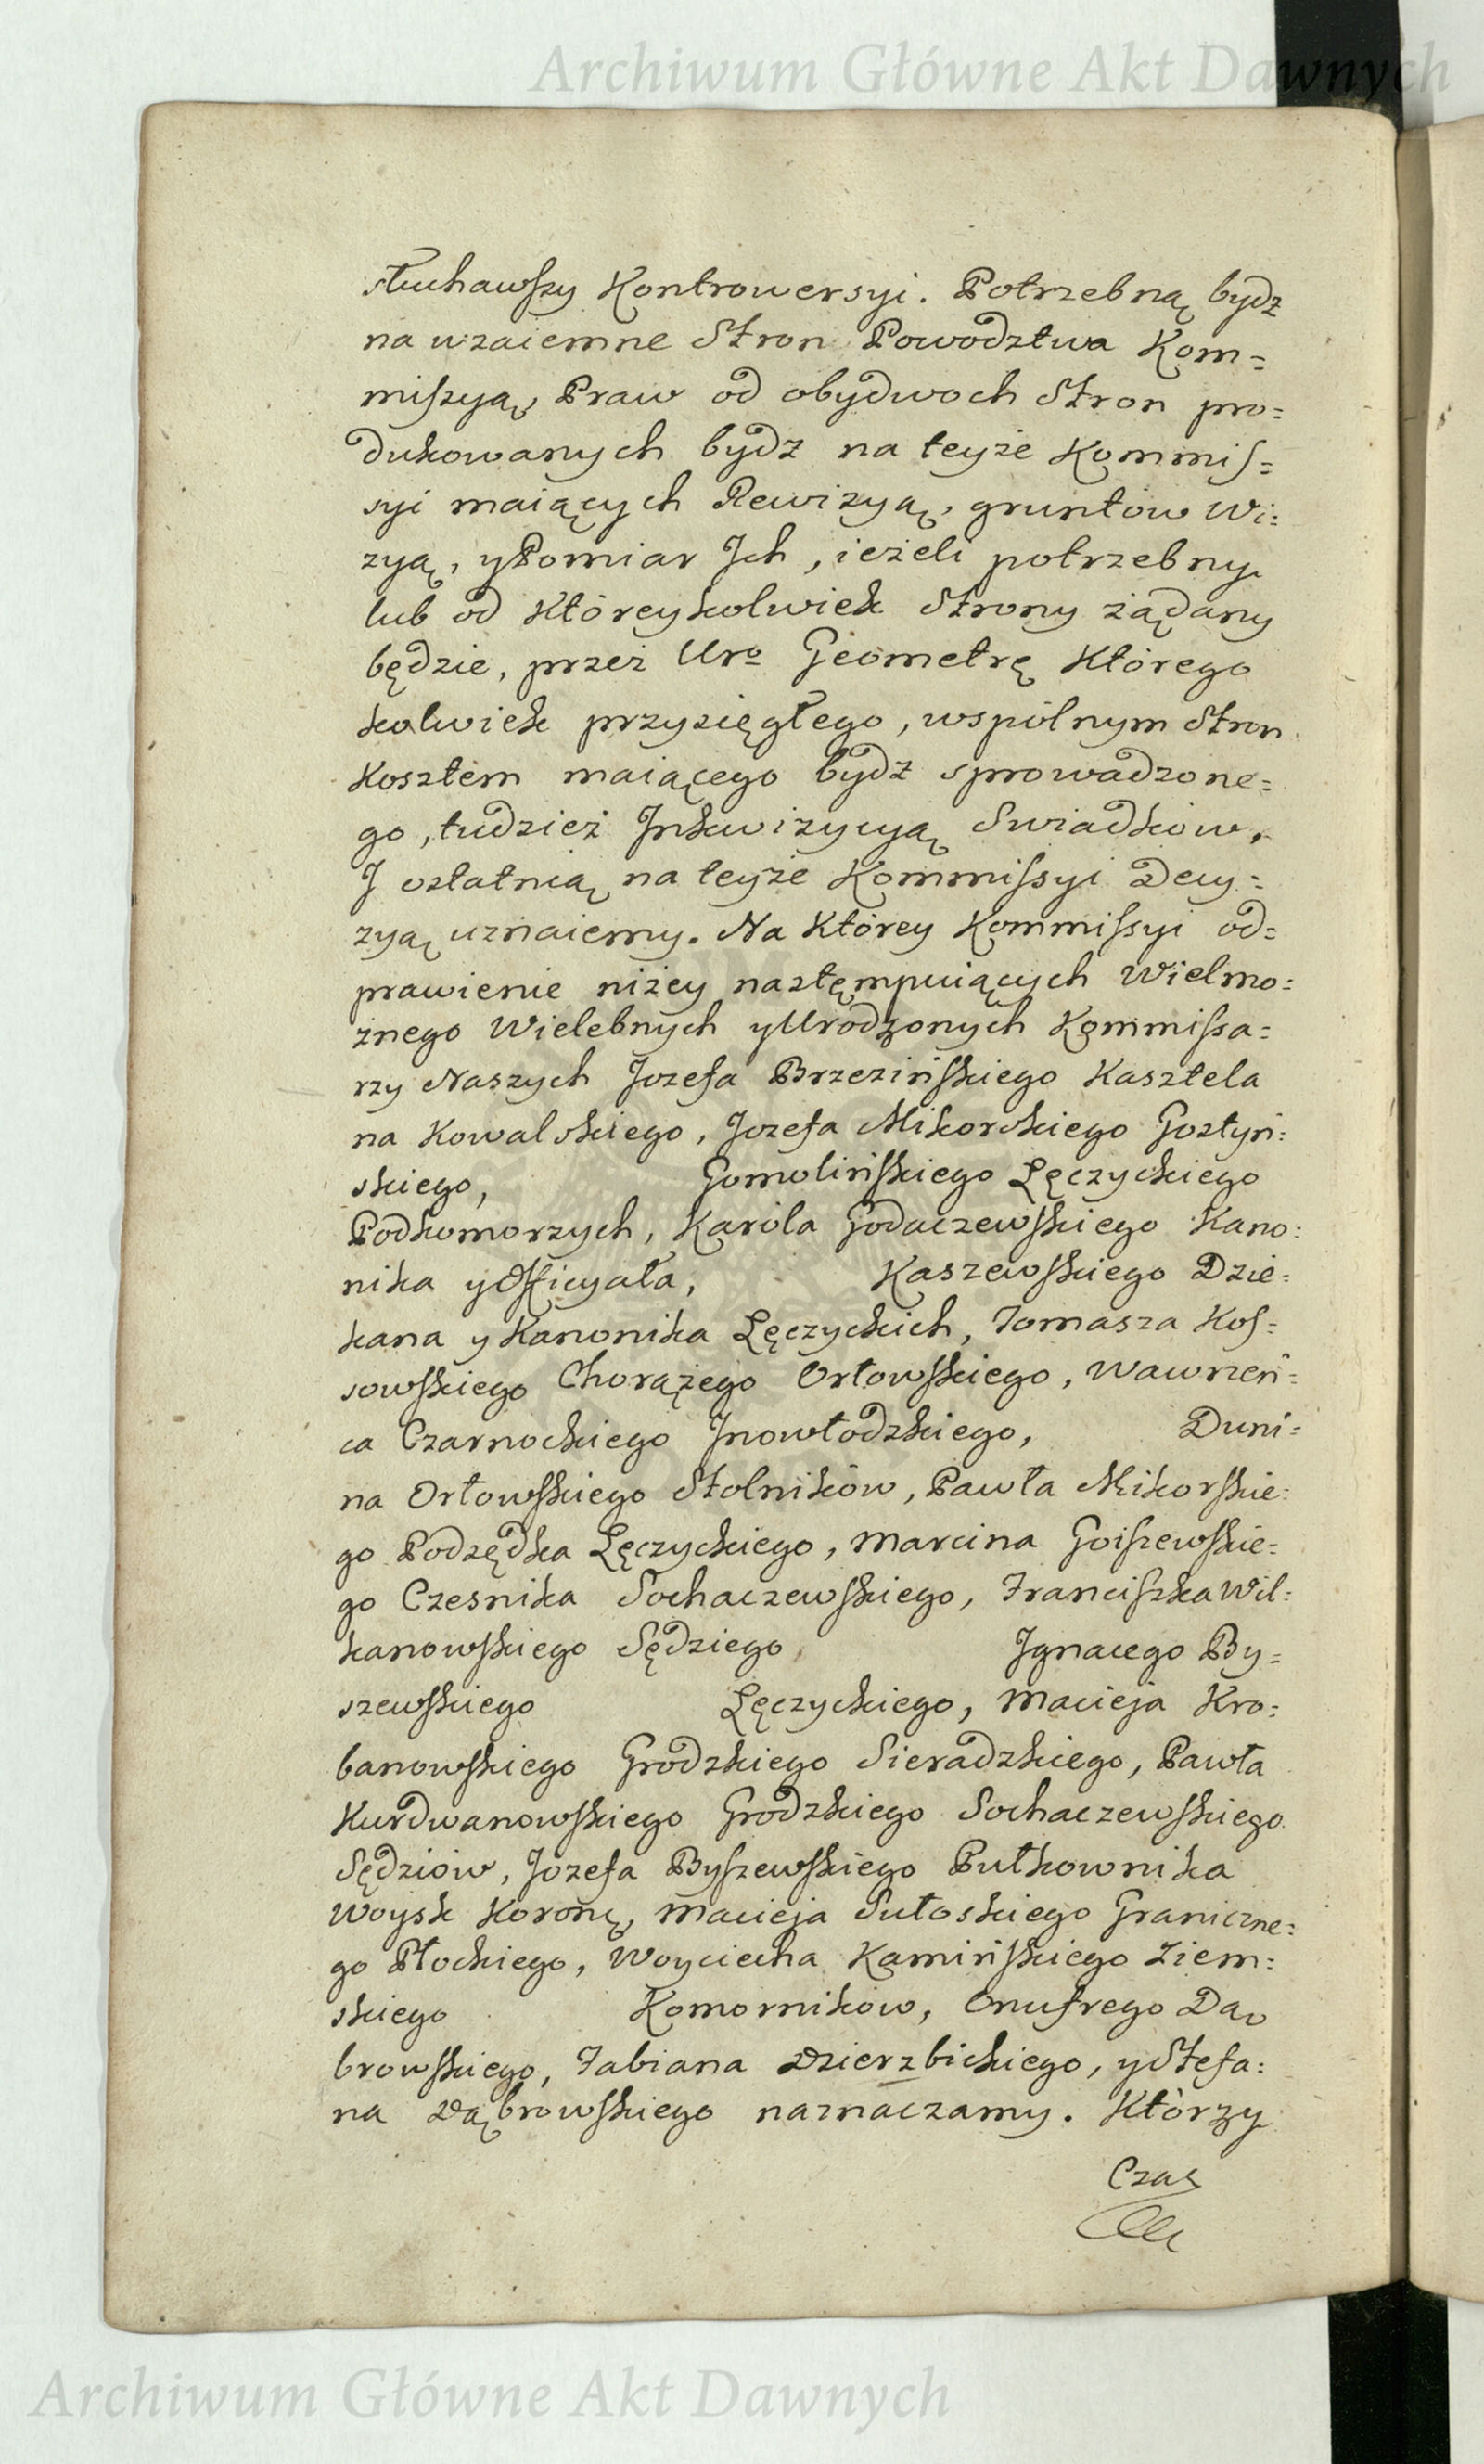 Archiwum Główne Akt Dawnych
słuchawszy Kontrowersyi. Potrzebną bydz
na wzaiemne Stron Powodztwa Kom=
miszyą, Praw od obydwoch Stron pro=
dukowanych bydz na teyże Kommis=
syi maiących Rewizyą, gruntow Wi=
zyą, y Pomiar Jch, ieżeli potrzebny
lub od Któreykolwiek Strony żądany
będzie, przez Uro Geometrę Którego
kolwiek przysięgłego, wspólnym Stron
Kosztem maiącego bydz sprowadzone=
go, tudzież Jnkwizycyą Swiadków,
J ostatnią na teyże Kommissyi Decy=
zyą uznaiemy. Na Którey Kommissyi od=
prawienie niżey następuiących Wielmo=
żnego Wielebnych y Urodzonych Kommissa=
rzy Naszych Jozefa Brzezińskiego Kasztela
na Kowalskiego, Jozefa Mikorskiego Gostyń=
skiego, Gomolińskiego Łęczyckiego
Podkomorzych, Karola Godaczewskiego Kano=
nika y Officyała, Kaszewskiego Dzie=
kana y Kanonika Łęczyckich, Tomasza Kos=
sowskiego Chorążego Orłowskiego, Wawrzeń=
ca Czarnockiego Jnowłodzkiego, Duni=
na Orłowskiego Stolników, Pawła Mikorskie=
go Podsędka Łęczyckiego, Marcina Goiszewskie=
go Czesnika Sochaczewskiego, Franciszka Wil=
kanowskiego Sędziego, Jgnacego By=
szewskiego Łęczyckiego, Macieja Kro=
banowskiego Grodzkiego Sieradzkiego, Pawła
Kurdwanowskiego Grodzkiego Sochaczewskiego
Sędziów, Jozefa Byszewskiego Pułkownika
Woysk Koronę, Macieja Sułoskiego Graniczne=
go Płockiego, Woyciecha Kamińskiego Ziem=
skiego Komorników, Onufrego Dą
browskiego, Fabiana Dzierzbickiego, y Stefa=
na Dąbrowskiego naznaczamy. Którzy
Czas
Archiwum Główne Akt Dawnych